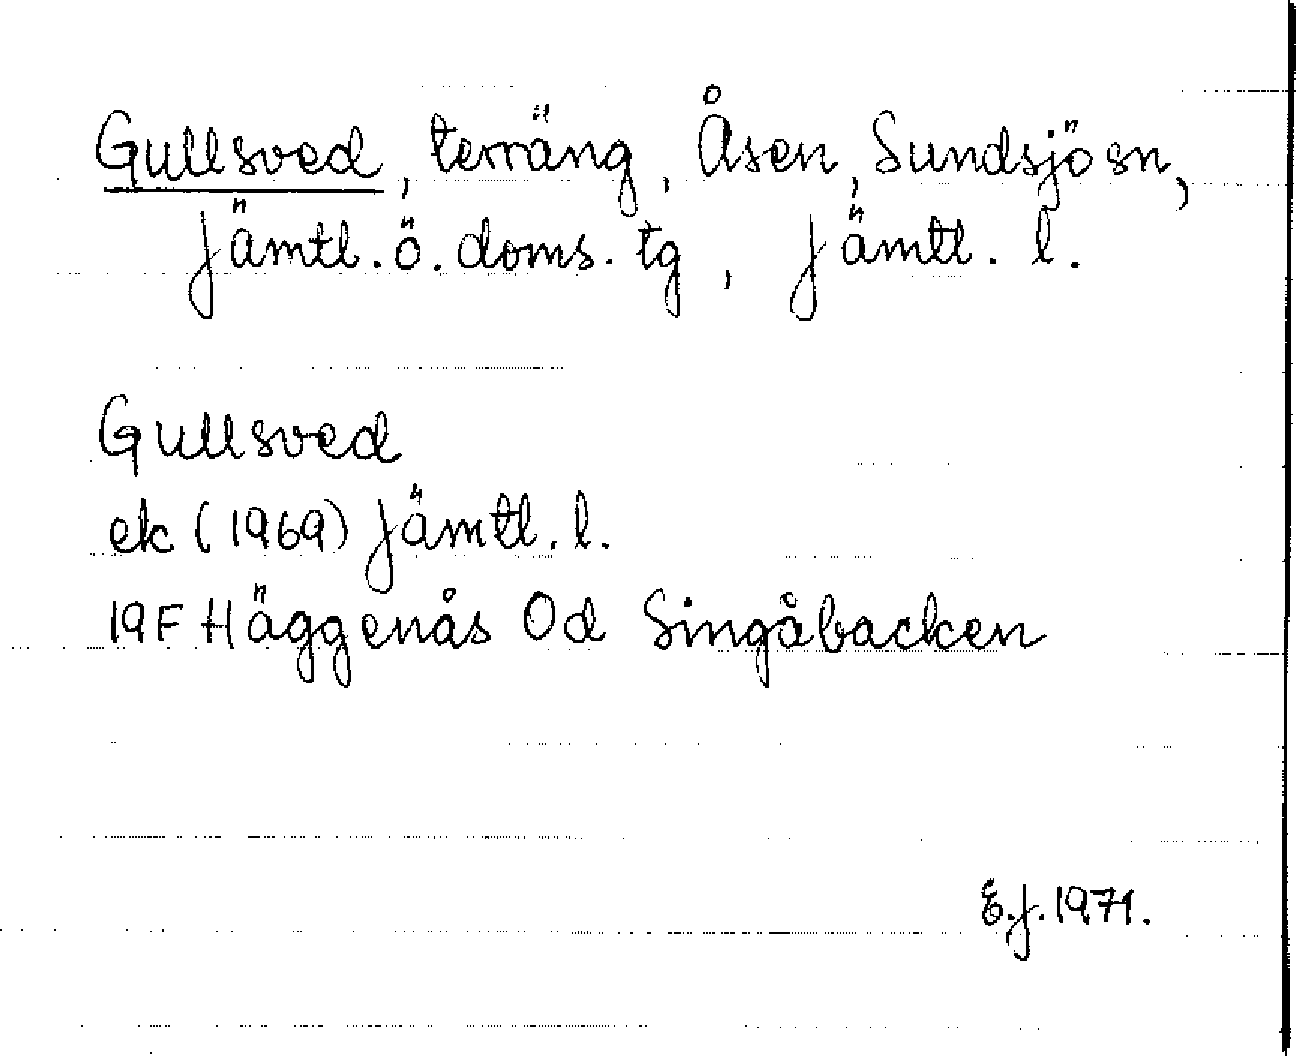 Gullsved, terräng, Åsen, Sundsjö sn,
Jämtl. ö. doms. tg, Jämtl. l.
Gullsved
ek (1969) Jämtl. l.
19F Häggenås Od Singåbacken
E.J. 1971.